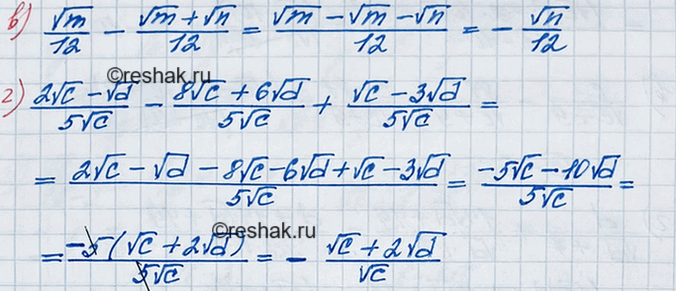 в) √m/12 - (√m + √n)/12 = (√m - √m - √n)/12 = - √n/12
©reshak.ru
г) (2√c - √d)/(5√c) - (8√c + 6√d)/(5√c) + (√c - 3√d)/(5√c) =
= (2√c - √d - 8√c - 6√d + √c - 3√d)/(5√c) = (-5√c - 10√d)/(5√c) =
©reshak.ru
= (-5(√c + 2√d))/(5√c) = - (√c + 2√d)/√c